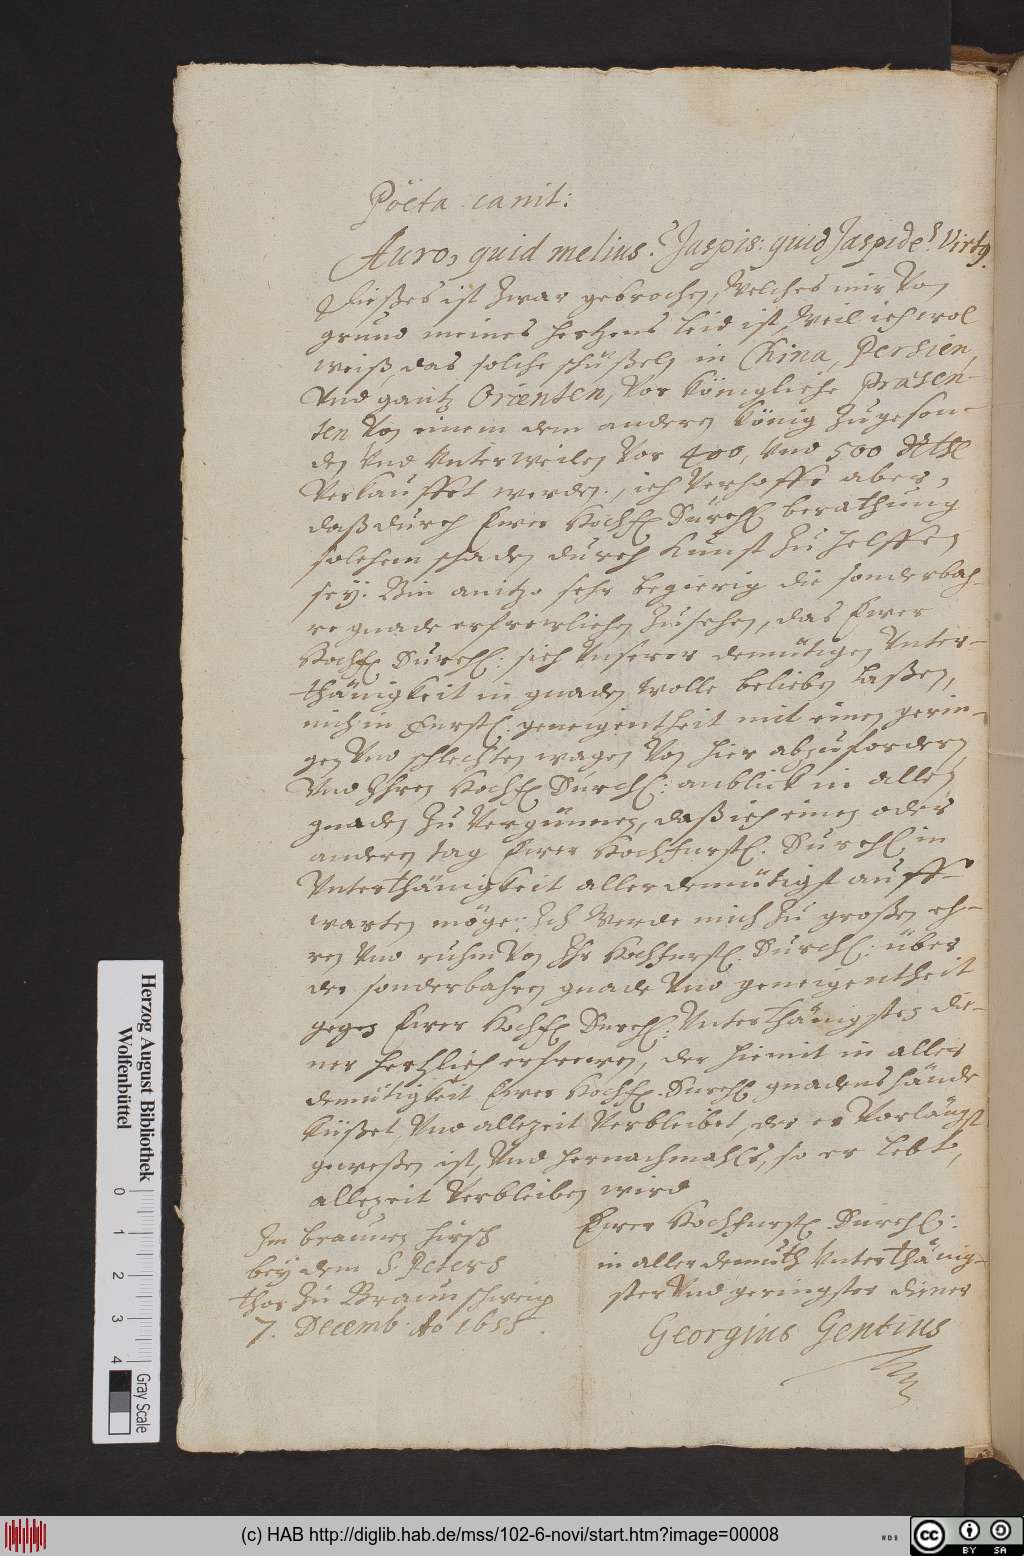 Pöeta canit:
Auro, quid melius? Jaspis: quid Jaspide? Virtq.
Dießes ist zwar gebrochen, Welches mir Von
grund meines hertzens leid ist, Weil ich wol
weiß, das solche schüßeln in China, Persien,
Vnd gantz Orienten, Vor Königliche Præsen-
ten Von einem dem anderen König zugeson-
den Vnd Vnterweilen Vor 400, Vnd 500 Rthl
Verkauffet werden., ich Verhoffe aber,
daß durch Ewer Hochf. Durchl. berathung
solchem schaden durch Kunst zu helffen
sey. Bin anitzo sehr begierig die sonderbah-
re gnade erfrewlichen zusehen, das Ewer
Hochf. Durchl: sich Vnserer demütigen Vnter-
thänigkeit in gnaden wolle belieben laßen,
mich in Fürstl: geneigentheit mit einen gerin-
gen Vnd schlechten wagen Von hier abzuforderen
Vnd Ihren Hochf. Durchl: anblick in allen
gnaden zu Vergünnen, daß ich einen oder
anderen tag Ewer Hochfürstl. Durchl. in
Vnterthänigkeit aller demütigst auff-
warten möge: Ich Werde mich zu großen eh-
ren Vnd ruhm Von Ihr Hochfürstl. Durchl: über
der sonderbahren gnade Vnd geneigentheit
gegen Ewer Hochf. Durchl: Vnterthänigsten die-
ner hertzlich erfrewen, der hiemit in aller
demütigkeit Ewer Hochf. Durchl. gnadenshände
küßet, Vnd allezeit Verbleibet, der er Vorlängst
geweßen ist, Vnd hernachmahls, so er lebt,
allezeit Verbleiben wird
Ewer Hochfürstl. Durchl:
in aller demuth Vnterthänig-
ster Vnd geringster diener
Georgius Gentius
Im braunen hirsch
bey dem S. Peters
thor zu Braunschweig
7. Decemb. Ao 1655.
Herzog August Bibliothek
Wolfenbüttel
0 1 2 3 4
Gray Scale
(c) HAB http://diglib.hab.de/mss/102-6-novi/start.htm?image=00008
WDB
cc BY SA